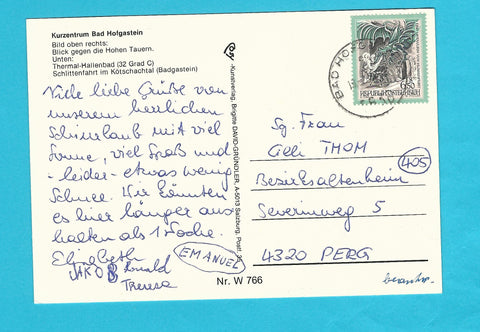 Kurzentrum Bad Hofgastein
Bild oben rechts:
Blick gegen die Hohen Tauern.
Unten:
Thermal-Hallenbad (32 Grad C)
Schlittenfahrt im Kötschachtal (Badgastein)
Viele liebe Grüße von
unserem herrlichen
Schiurlaub mit viel
Sonne, viel Spaß und
-leider- etwas wenig
Schnee. Wir könnten
es hier länger aus
halten als 1 Woche.
Elisabeth
JAKOB
Theresa
EMANUEL
Kunstverlag, Brigitte DAVID-GRÜNDLER, A-5013 Salzburg, Postf.
Nr. W 766
BAD HOFG
REPUBLIK ÖSTERREICH
Sg. Frau
THOM
405
Bezirksaltenheim
Severinweg 5
4320 PERG